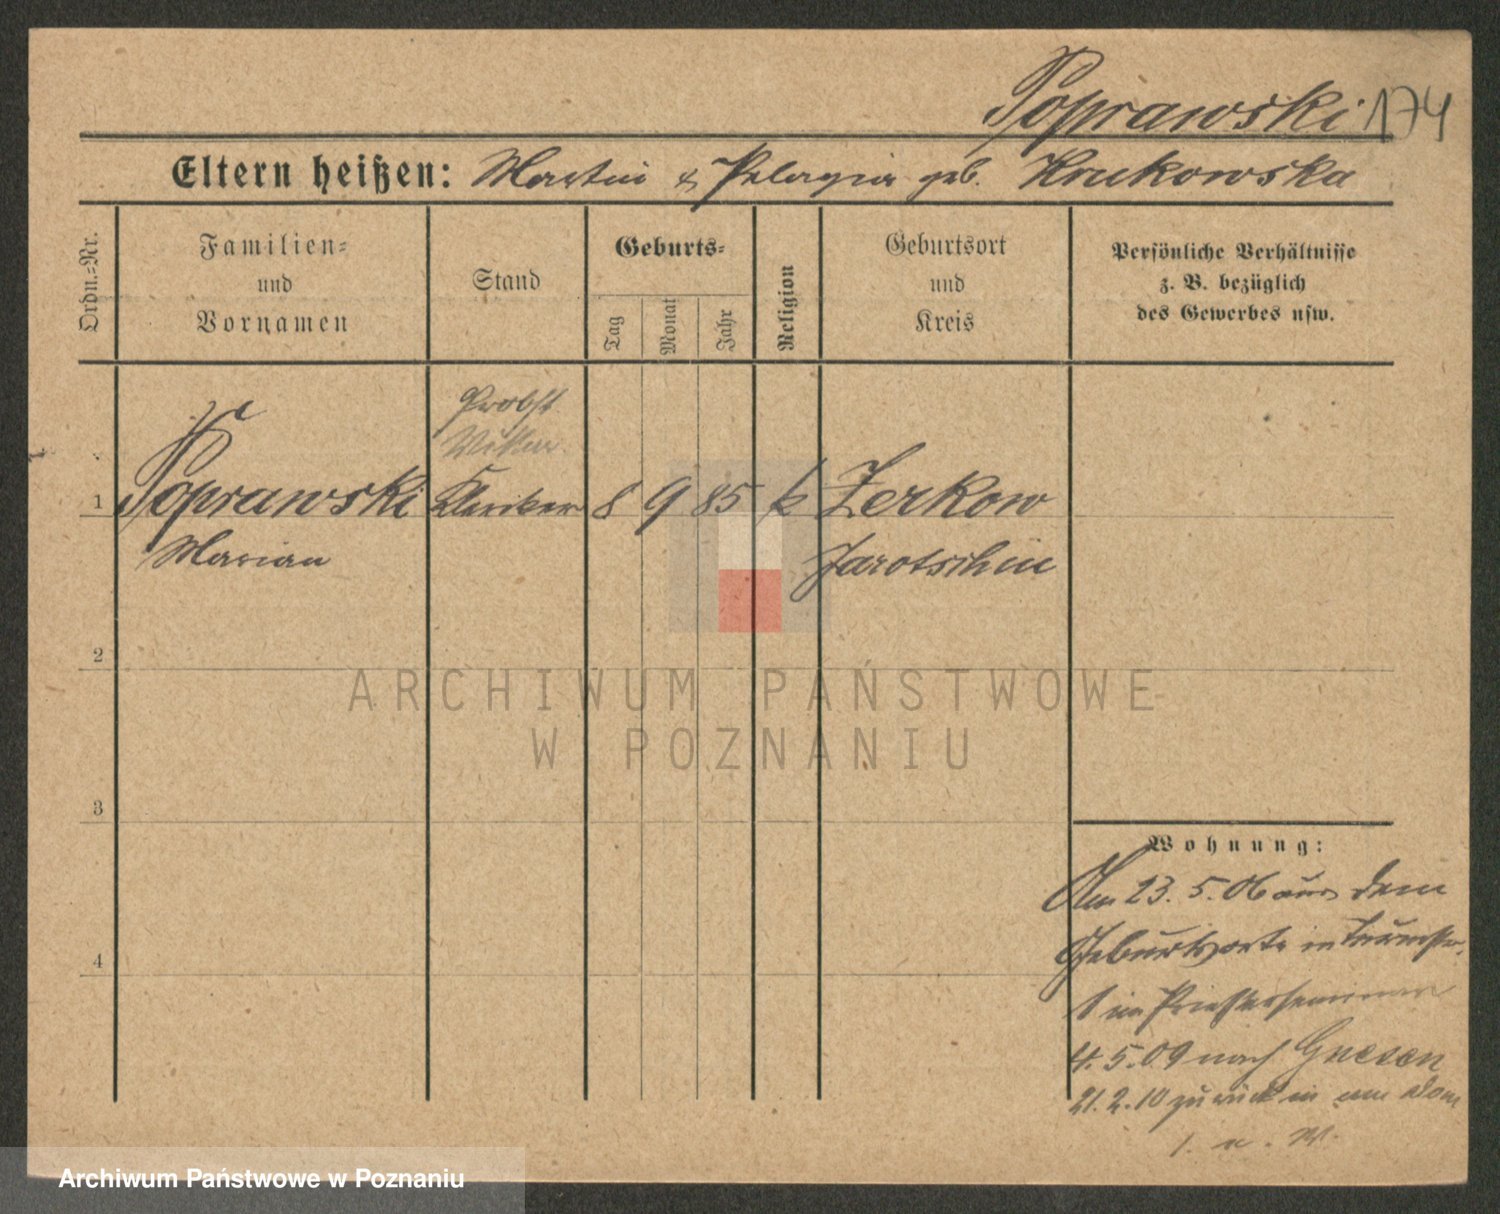 Poprawski 174
Eltern heißen: Martin & Pelagia geb. Krukowska
Ordn.-Nr.
Familien-
und
Vornamen
Stand
Geburts-
Tag
Monat
Jahr
Religion
Geburtsort
und
Kreis
Persönliche Verhältnisse
z. B. bezüglich
des Gewerbes usw.
Probst
Vikar
1 Poprawski Kleriker 8 9 85 k Zerkow
Marian Jarotschin
2
ARCHIWUM PAŃSTWOWE
W POZNANIU
3
4
Wohnung:
Am 23.5.06 aus dem
Geburtsorte in
1 im Priesterseminar
4.5.09 nach Gnesen
21.2.10 zurück in am Dom
1. n. W.
Archiwum Państwowe w Poznaniu